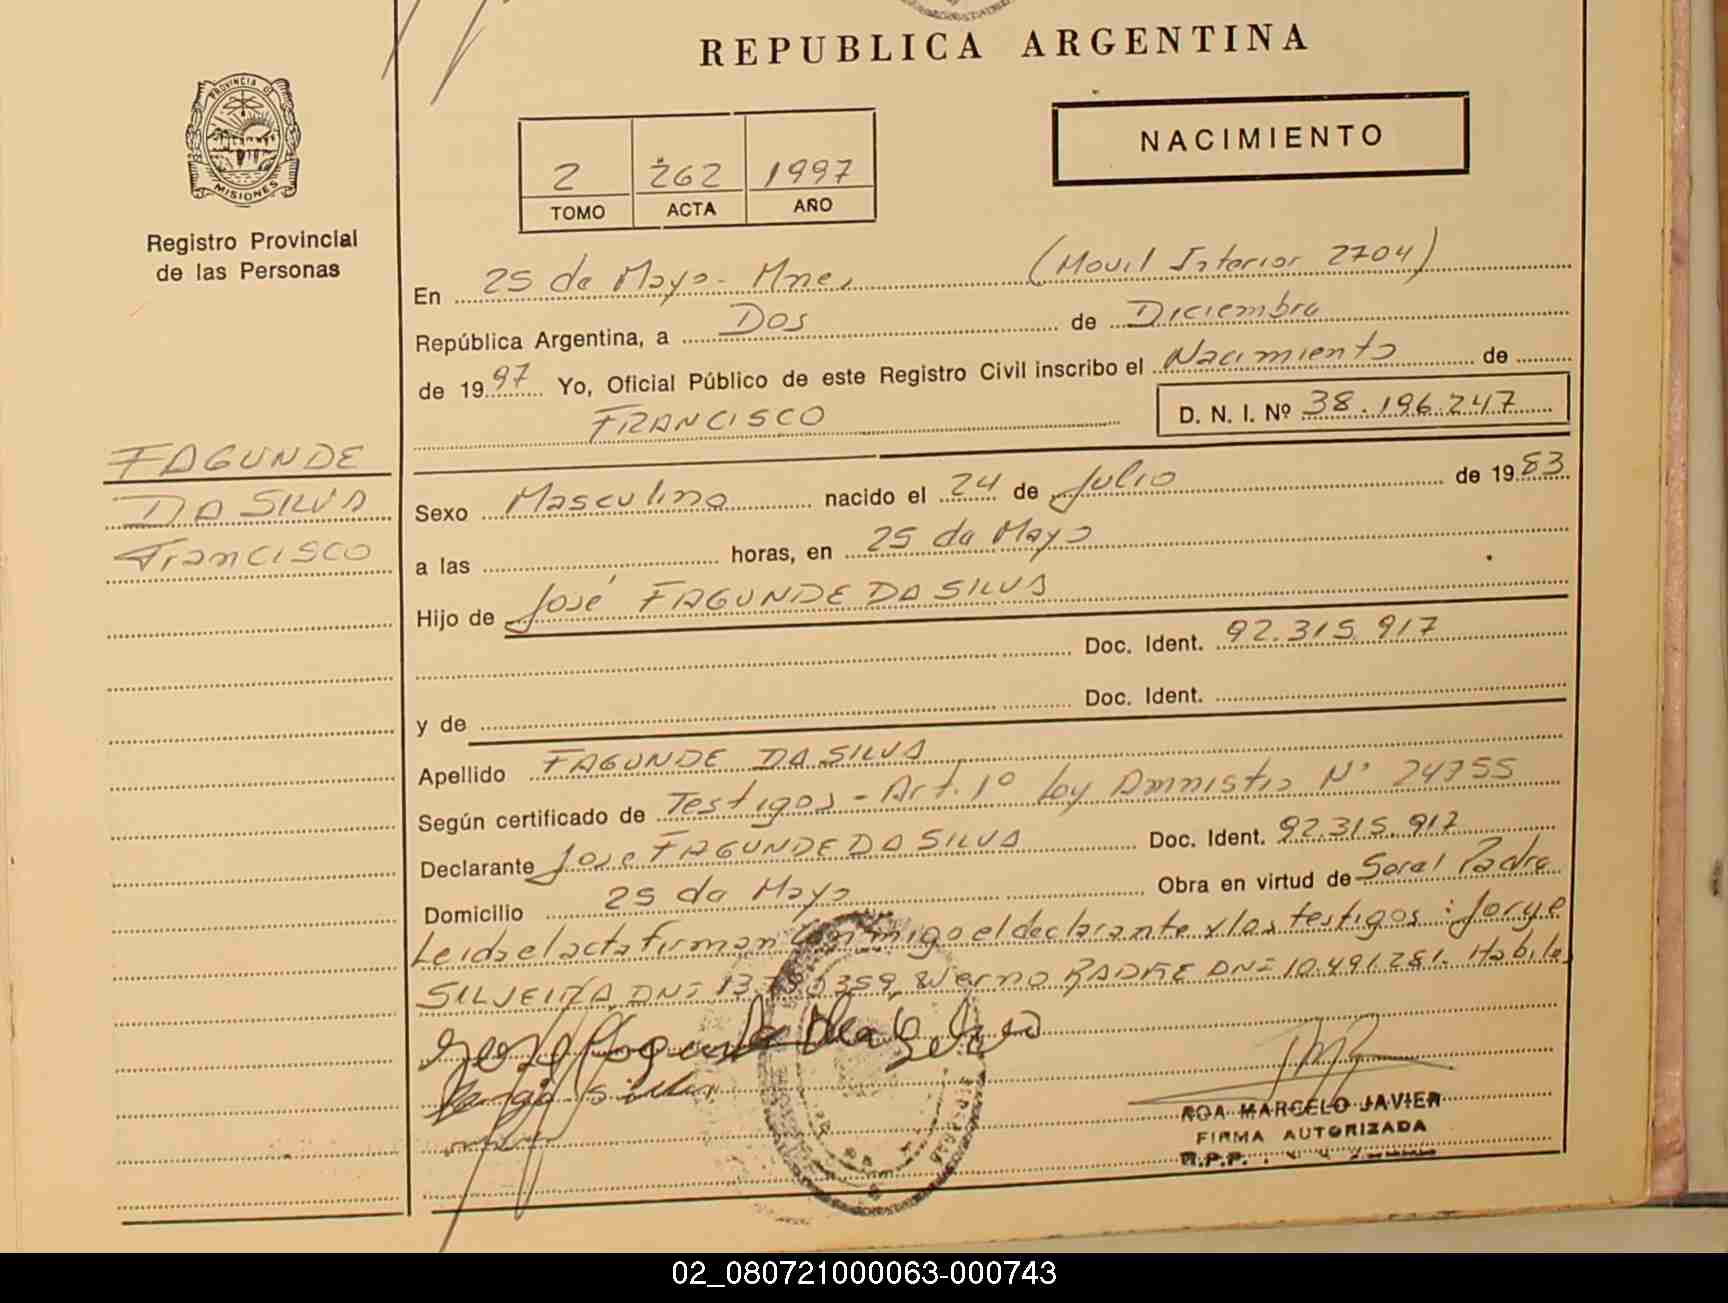 REPUBLICA ARGENTINA
PROVINCIA DE
MISIONES
Registro Provincial
de las Personas
NACIMIENTO
2 262 1997
TOMO ACTA AÑO
En 25 de Mayo - Mnes (Movil Interior 2704)
República Argentina, a Dos de Diciembre
de 1997 Yo, Oficial Público de este Registro Civil inscribo el Nacimiento de
FRANCISCO D. N. I. Nº 38.196.247
FAGUNDE
DA SILVA
Francisco
Sexo Masculino nacido el 24 de Julio de 1983
a las horas, en 25 de Mayo
Hijo de José FAGUNDE DA SILVA
Doc. Ident. 92.315.917
y de Doc. Ident.
Apellido FAGUNDE DA SILVA
Según certificado de Testigos - Art. 1º Ley Amnistia Nº 24755
Declarante Jose FAGUNDE DA SILVA Doc. Ident. 92.315.917
Domicilio 25 de Mayo Obra en virtud de Ser el Padre
Leida el acta firman conmigo el declarante y los testigos: Jorge
SILVEIRA, DNI 13. 359, Werno RADKE DNI 10.491.281. Habiles
ROA MARCELO JAVIER
FIRMA AUTORIZADA
R.P.P.
02_080721000063-000743